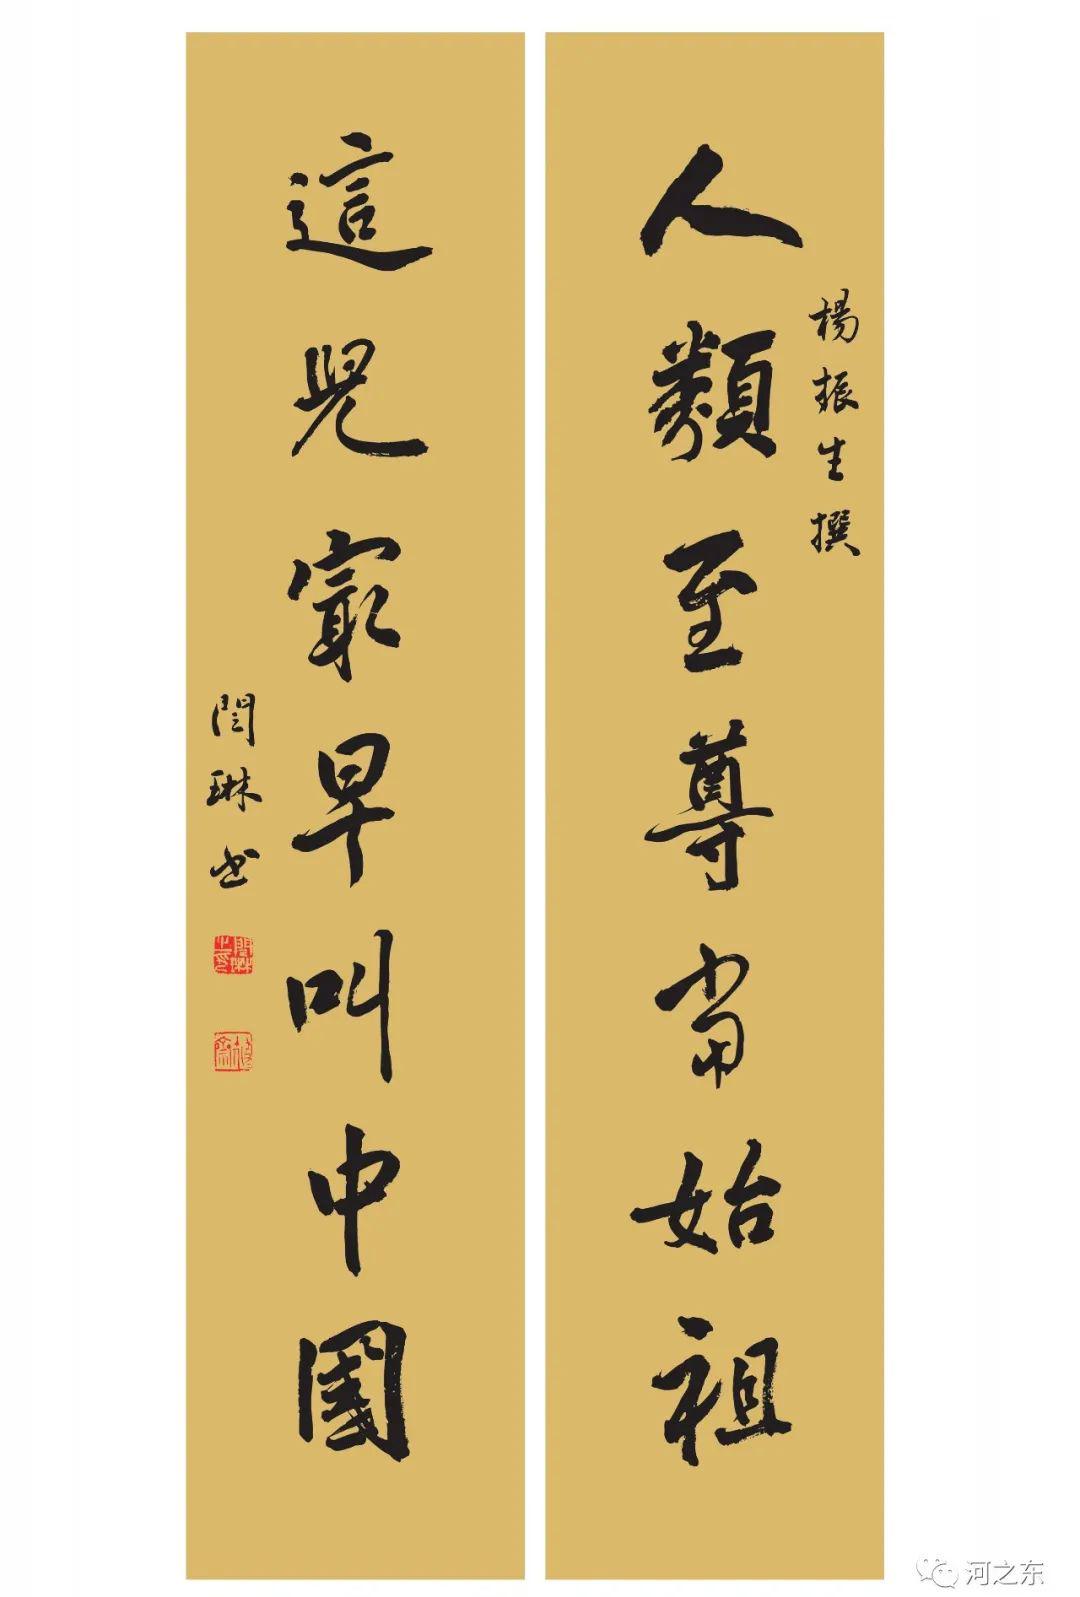 人類至尊當始祖
楊振生撰
這兒最早叫中國
閆琳书
河之东